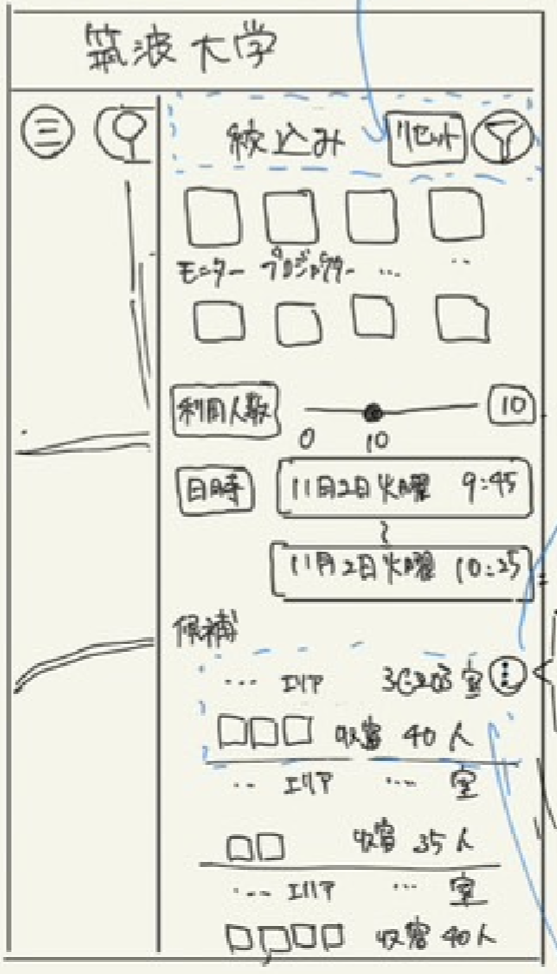 筑波大学
絞込み リセット
モニター プロジェクター ... ..
利用人数 10
0 10
日時 11月2日火曜 9:45
~
11月2日火曜 10:25
候補
... エリア 3C203室
収容 40人
.. エリア ... 室
収容 35人
... エリア ... 室
収容 40人